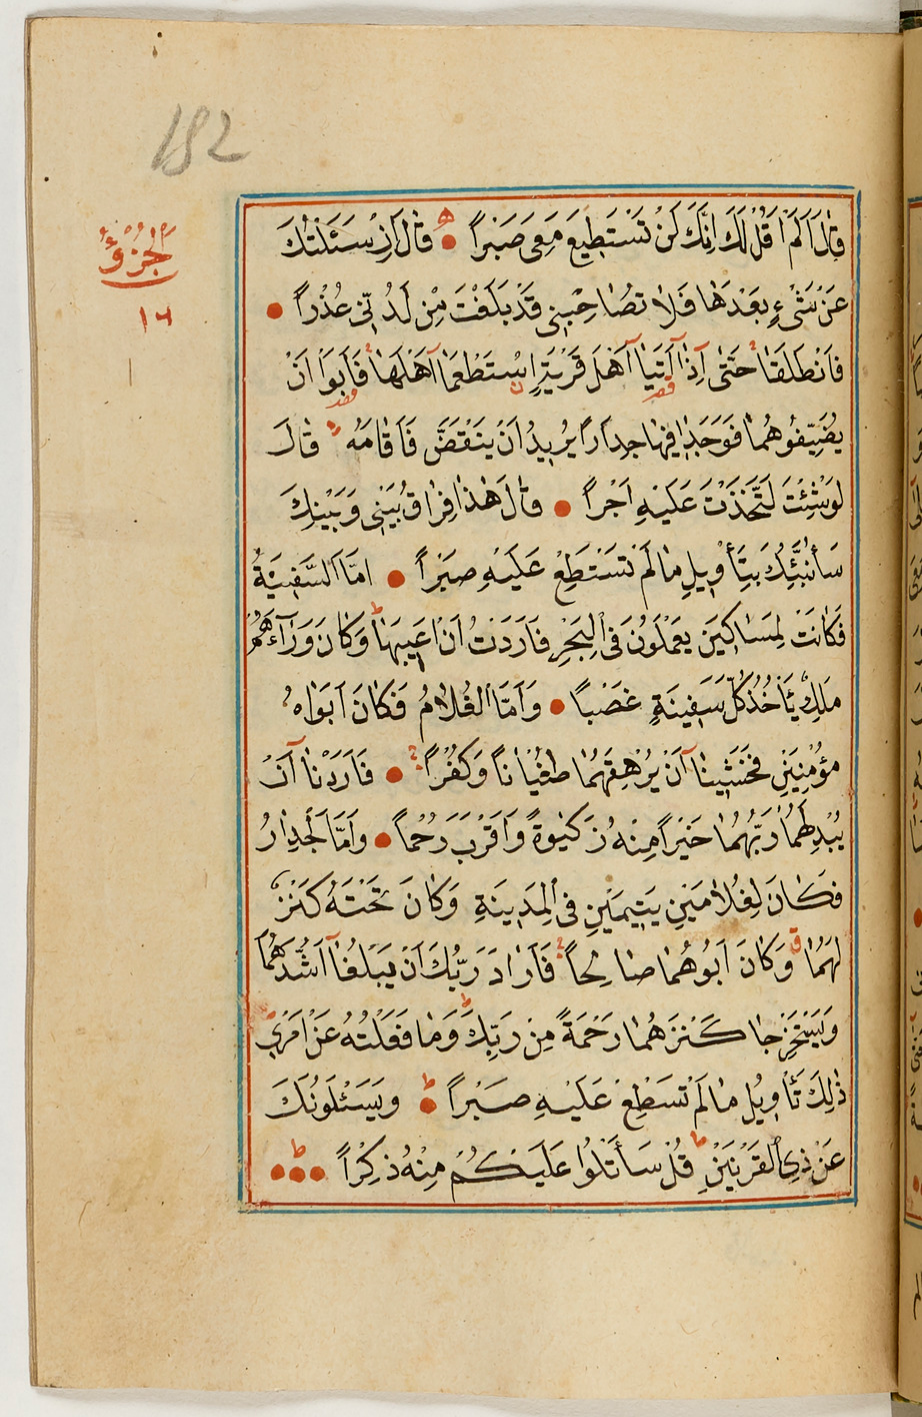 152
اَلْجُزْؤُ
١٦
قَالَ اَلَمْ اَقُلْ لَكَ اِنَّكَ لَنْ تَسْتَطِيعَ مَعِىَ صَبْرًا ● قَالَ اِنْ سَئَلْتُكَ
عَنْ شَىْءٍ بَعْدَهَا فَلَا تُصَاحِبْنِى قَدْ بَلَغْتَ مِنْ لَدُنِّى عُذْرًا ●
فَانْطَلَقَا حَتّٰى اِذَٓا اَتَيَٓا اَهْلَ قَرْيَةٍ اسْتَطْعَمَٓا اَهْلَهَا فَاَبَوْا اَنْ
يُضَيِّفُوهُمَا فَوَجَدَا فِيهَا جِدَارًا يُرِيدُ اَنْ يَنْقَضَّ فَاَقَامَهُ قَالَ
لَوْ شِئْتَ لَتَّخَذْتَ عَلَيْهِ اَجْرًا ● قَالَ هٰذَا فِرَاقُ بَيْنِى وَبَيْنِكَ
سَاُنَبِّئُكَ بِتَأْوِيلِ مَالَمْ تَسْتَطِعْ عَلَيْهِ صَبْرًا ● اَمَّا السَّفِينَةُ
فَكَانَتْ لِمَسَاكِينَ يَعْمَلُونَ فِى الْبَحْرِ فَاَرَدْتُ اَنْ اَعِيبَهَا وَكَانَ وَرَٓاءَهُمْ
مَلِكٌ يَأْخُذُ كُلَّ سَفِينَةٍ غَصْبًا ● وَاَمَّا الْغُلَامُ فَكَانَ اَبَوَاهُ
مُؤْمِنَيْنِ فَخَشِينَٓا اَنْ يُرْهِقَهُمَا طُغْيَانًا وَكُفْرًا ● فَاَرَدْنَٓا اَنْ
يُبْدِلَهُمَا رَبُّهُمَا خَيْرًا مِنْهُ زَكٰوةً وَاَقْرَبَ رُحْمًا ● وَاَمَّا الْجِدَارُ
فَكَانَ لِغُلَامَيْنِ يَتِيمَيْنِ فِى الْمَدِينَةِ وَكَانَ تَحْتَهُ كَنْزٌ
لَهُمَا وَكَانَ اَبُوهُمَا صَالِحًا فَاَرَادَ رَبُّكَ اَنْ يَبْلُغَٓا اَشُدَّهُمَا
وَيَسْتَخْرِجَا كَنْزَهُمَا رَحْمَةً مِنْ رَبِّكَ وَمَا فَعَلْتُهُ عَنْ اَمْرِى
ذٰلِكَ تَأْوِيلُ مَالَمْ تَسْطِعْ عَلَيْهِ صَبْرًا ● وَيَسْئَلُونَكَ
عَنْ ذِى الْقَرْنَيْنِ قُلْ سَاَتْلُوا عَلَيْكُمْ مِنْهُ ذِكْرًا ●●●